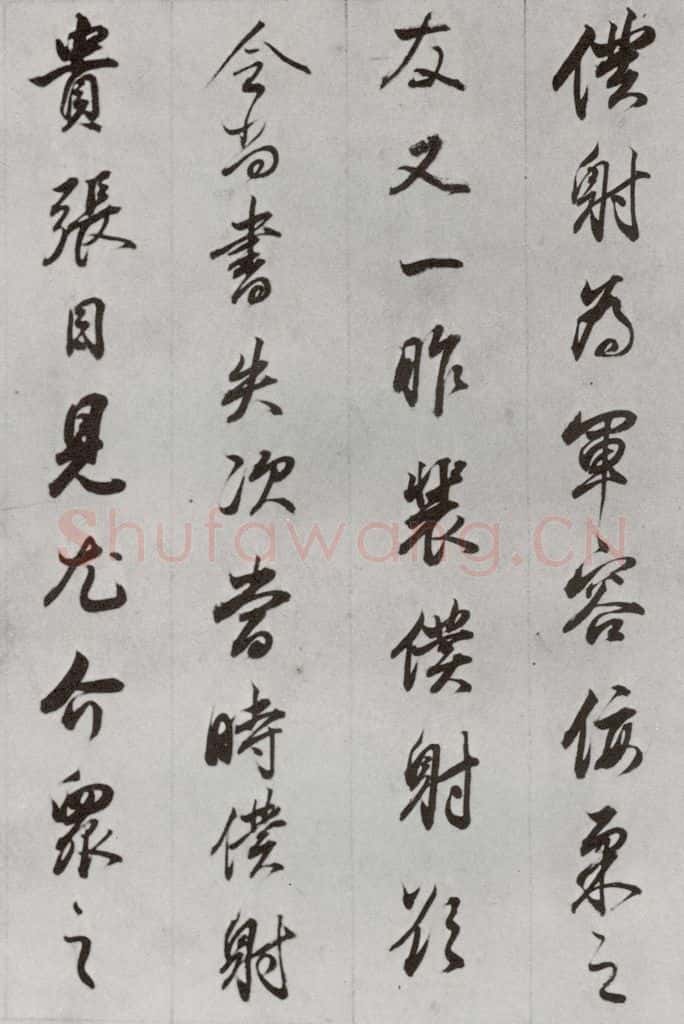 僕射為軍容佞柔之
友又一昨裴僕射欲
令尚書失次當時僕射
貴張目見尤介眾之
Shufawang.CN